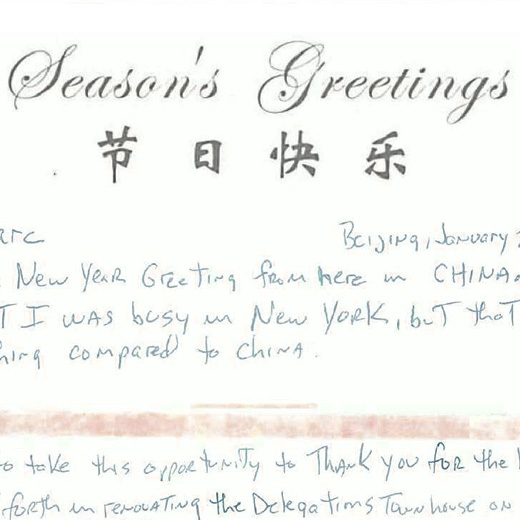 Season's Greetings
节日快乐
Beijing, January
New Year Greeting from here in CHINA.
I was busy in New York, but that
compared to China.
to take this opportunity to Thank you for the
forth in renovating the Delegations Townhouse on